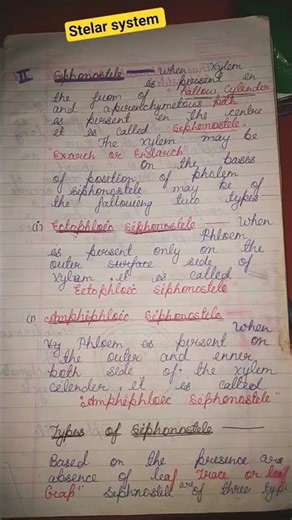 Stelar system
II Siphonostele — When Xylem
is present in
the fuom of "Hallow cylender"
and aparenchymetous Path
is present in the centre
it is called Siphonostele.
The xylem may be
"Exarch or Endarch"
On the bases
of position of phalem
siphonostele may be of
the fallowing two types
(i) Ectophloic Siphonostele When
Phloem
is persent only on the
outer surface side of
Xylam it is called
Ectaphloic Siphonostele
(i) Amphiphloic Siphonostele
When
Xy Phloem is present on
the outer and enner
both side of the xylem
celender it is called
"Amphiphloic Sephonostele"
Types of Siphonostele —
Based on the presence are
absence of leaf Trace or leaf
Grap" sephnostel are of three typ